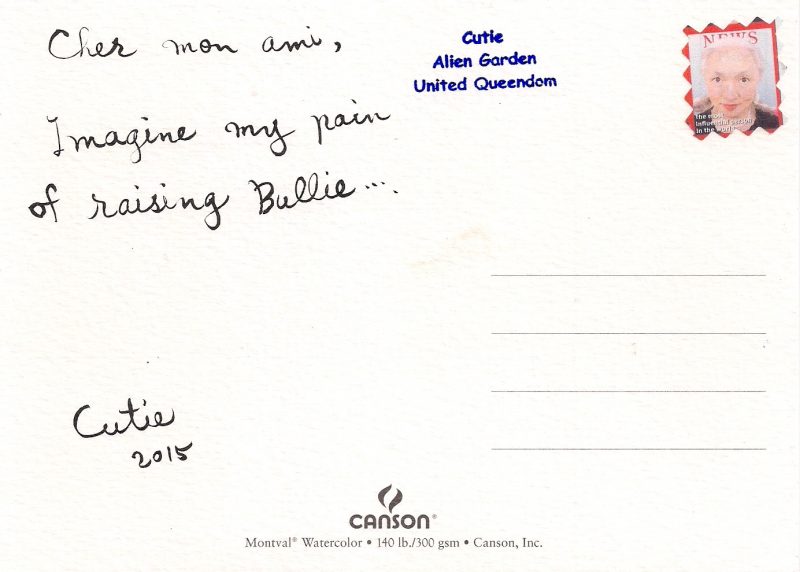 Cher mon ami,
Imagine my pain
of raising Bullie....
Cutie
2015
Cutie
Alien Garden
United Queendom
NEWS
The most
influential person
in the world
CANSON®
Montval® Watercolor • 140 lb./300 gsm • Canson, Inc.